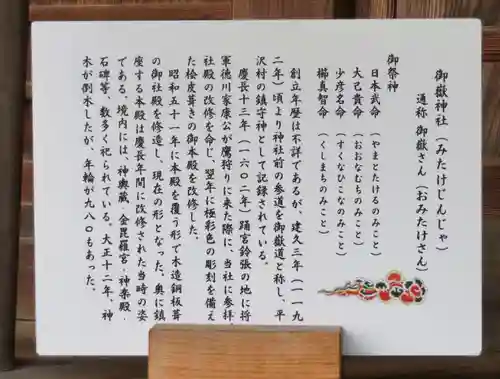 御嶽神社(みたけじんじゃ)
通称 御嶽さん(おみたけさん)
御祭神
日本武命(やまとたけるのみこと)
大己貴命(おおなむちのみこと)
少彦名命(すくなひこなのみこと)
櫛真智命(くしまちのみこと)
創立年歴は不詳であるが、建久三年(一一九
二年)頃より神社前の参道を御嶽道と称し、平
沢村の鎮守神として記録されている。
慶長十三年(一六〇二年)踊宮鈴張の地に将
軍徳川家康公が鷹狩りに来た際に、当社に参拝、
社殿の改修を命じ、翌年に極彩色の彫刻を備え
た桧皮葺きの御本殿を改修した。
昭和五十一年に本殿を覆う形で木造銅板葺
の御社殿を修造し、現在の形となった。奥に鎮
座する本殿は慶長年間に改修された当時の姿
である。境内には、神輿蔵・金毘羅宮・神楽殿・
石碑等、数多く祀られている。大正十二年、神
木が倒木したが、年輪が九八〇もあった。